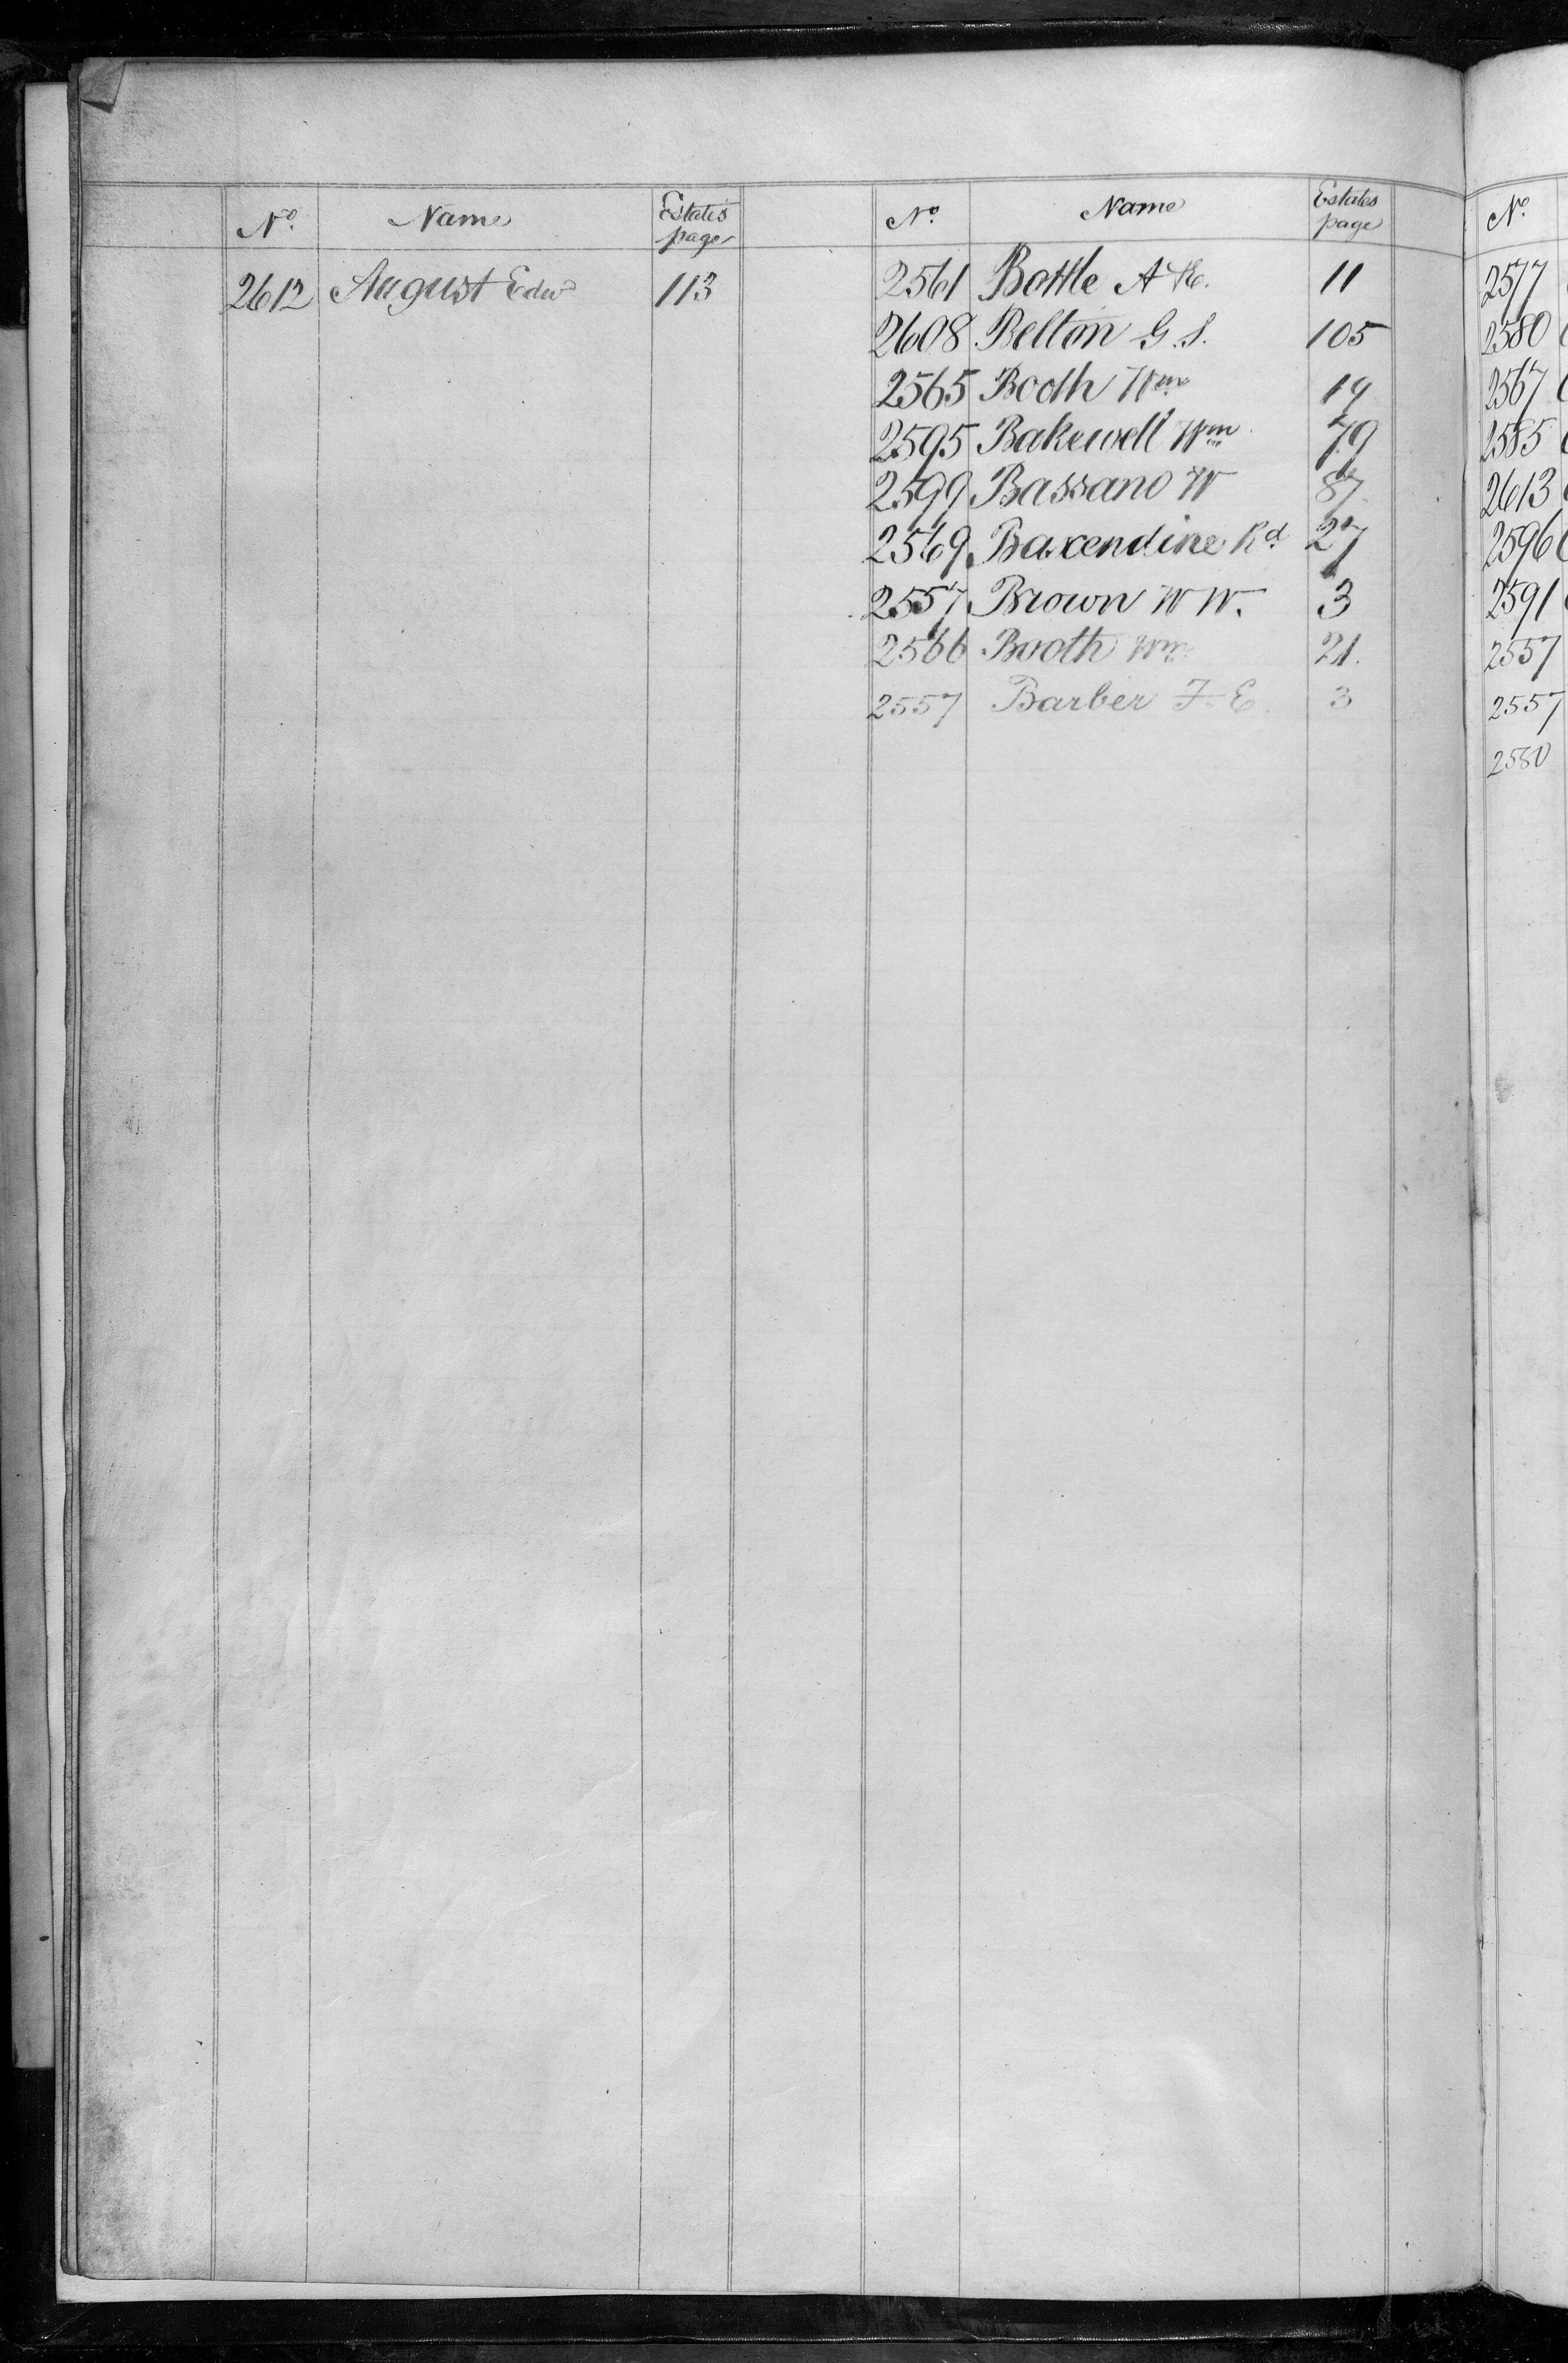 Nº Name Estates page
2612 August Edwd 113
Nº Name Estates page
2561 Bottle A 11
2608 Belton G. S. 105
2565 Booth Wm 19
2595 Bakewell Wm 79
2599 Bassano W 87
2569 Baxendine Rd 27
2557 Brown W W. 3
2566 Booth Wm 21.
2557 Barber F. E. 3
Nº
2577
2580
2567
2585
2613
2596
2591
2557
2557
2580